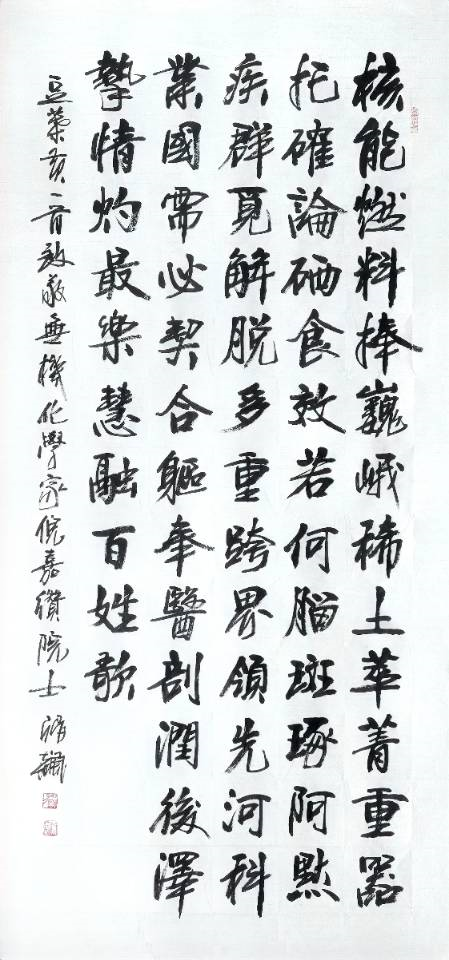 核能燃料捧巍峨稀土萃菁重器
托確論硒食效若何腦斑琢阿黙
疾群覓解脱多重跨界領先河科
業國需必契合軀奉醫剖潤後澤
摯情灼最樂慧融百姓歌
豆葉黄二首致敬無機化學家倪嘉纘院士